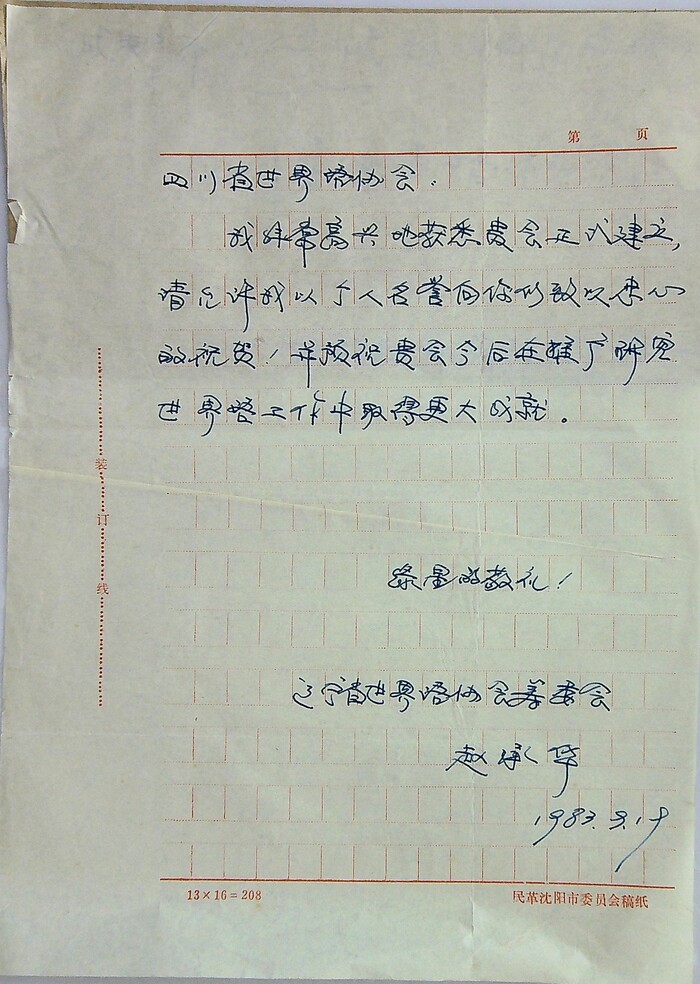 第 页
四川省世界语协会：
我非常高兴地获悉贵会正式建立，
请允许我以个人名誉向你们致以衷心
的祝贺！并预祝贵会今后在推广研究
世界语工作中取得更大成就。
绿星的敬礼！
辽宁省世界语协会筹委会
赵承华
1983.9.19
装订线
13×16＝208 民革沈阳市委员会稿纸